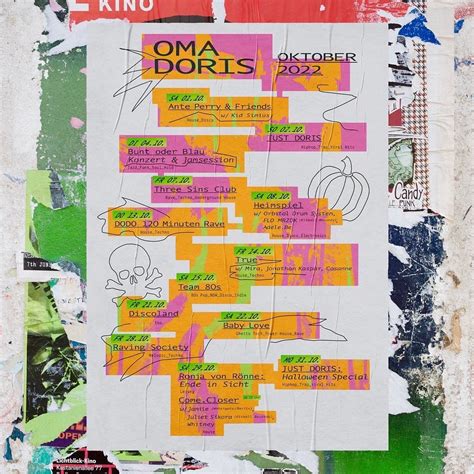 KINO
OMA
DORIS
OKTOBER
2022
SA 01.10.
Ante Perry & Friends
w/ Kid Simius
House, Disco
SO 02.10.
JUST DORIS
DI 04.10.
Bunt oder Blau
Konzert & Jamsession
FR 07.10.
Three Sins Club
SA 08.10.
Heimspiel
w/ Orbital Drum System,
DO 13.10.
DODO 120 Minuten Rave
House, Techno
FR 14.10.
True
w/ Mira, Jonathan Kaspar, Casanne
House, Techno
SA 15.10.
Team 80s
FR 21.10.
Discoland
SA 22.10.
Baby Love
FR 28.10.
Raving Society
Melodic, Techno
SA 29.10.
Ronja von Rönne:
Ende in Sicht
Come.Closer
Whitney
House
MO 31.10.
JUST DORIS:
Halloween Special
Candy
7th JUN
OPEN
Lichtblick-Kino
Kastanienallee 77